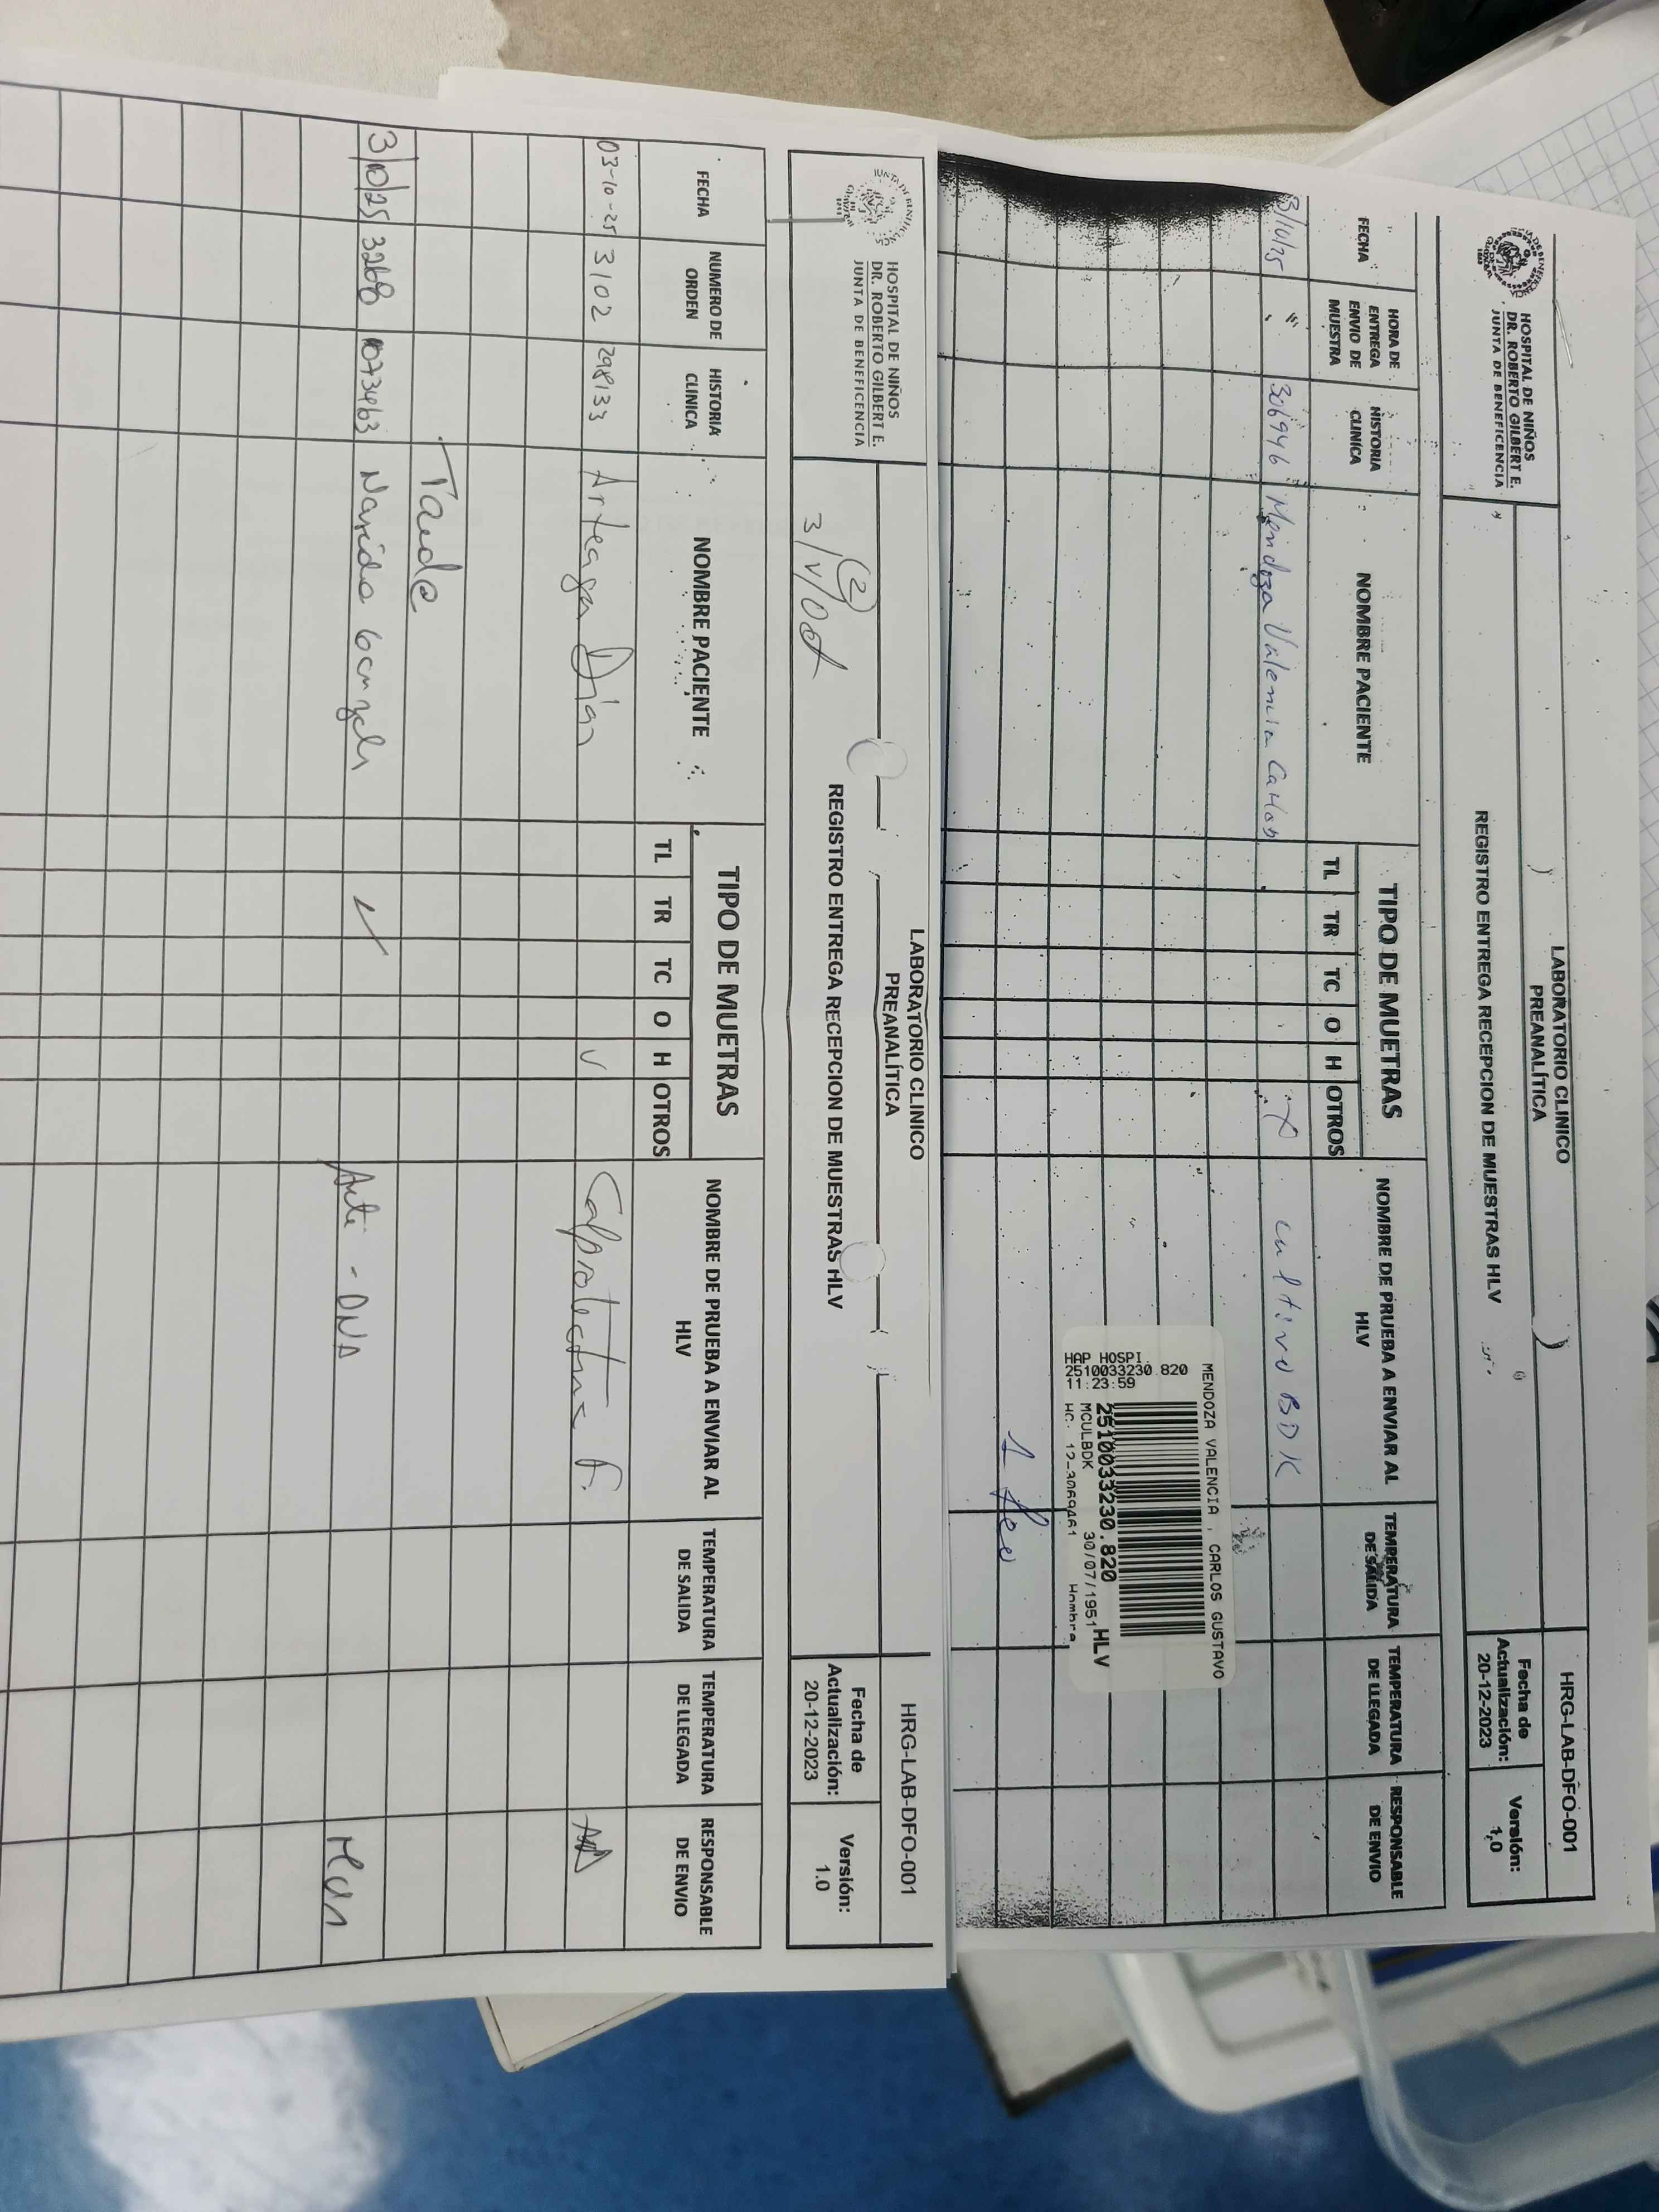 HOSPITAL DE NIÑOS
DR. ROBERTO GILBERT E.
JUNTA DE BENEFICENCIA
LABORATORIO CLINICO
PREANALÍTICA
HRG-LAB-DFO-001
REGISTRO ENTREGA RECEPCION DE MUESTRAS HLV
Fecha de Actualización: 20-12-2023
Versión: 1,0
FECHA
HORA DE ENTREGA ENVIO DE MUESTRA
HISTORIA CLINICA
NOMBRE PACIENTE
TIPO DE MUETRAS
TL TR TC O H OTROS
NOMBRE DE PRUEBA A ENVIAR AL HLV
TEMPERATURA DE SALIDA
TEMPERATURA DE LLEGADA
RESPONSABLE DE ENVIO
3/10/25 " 306946 Mendoza Valencia Carlos X cultivo BDK
MENDOZA VALENCIA , CARLOS GUSTAVO
HAP HOSPI.
2510033230 820
11:23:59
2510033230.820 HLV
MCULBDK 30/07/1951
HC. 12-3069461 Hombre
HOSPITAL DE NIÑOS
DR. ROBERTO GILBERT E.
JUNTA DE BENEFICENCIA
LABORATORIO CLINICO
PREANALÍTICA
HRG-LAB-DFO-001
(2)
3/V/Oct
REGISTRO ENTREGA RECEPCION DE MUESTRAS HLV
Fecha de Actualización: 20-12-2023
Versión: 1.0
FECHA
NUMERO DE ORDEN
HISTORIA CLINICA
NOMBRE PACIENTE
TIPO DE MUETRAS
TL TR TC O H OTROS
NOMBRE DE PRUEBA A ENVIAR AL HLV
TEMPERATURA DE SALIDA
TEMPERATURA DE LLEGADA
RESPONSABLE DE ENVIO
03-10-25 3102 298133 Arteaga Dilan Calprotectina F.
Tarde
3/10/25 3268 1073463 Anti-DNA